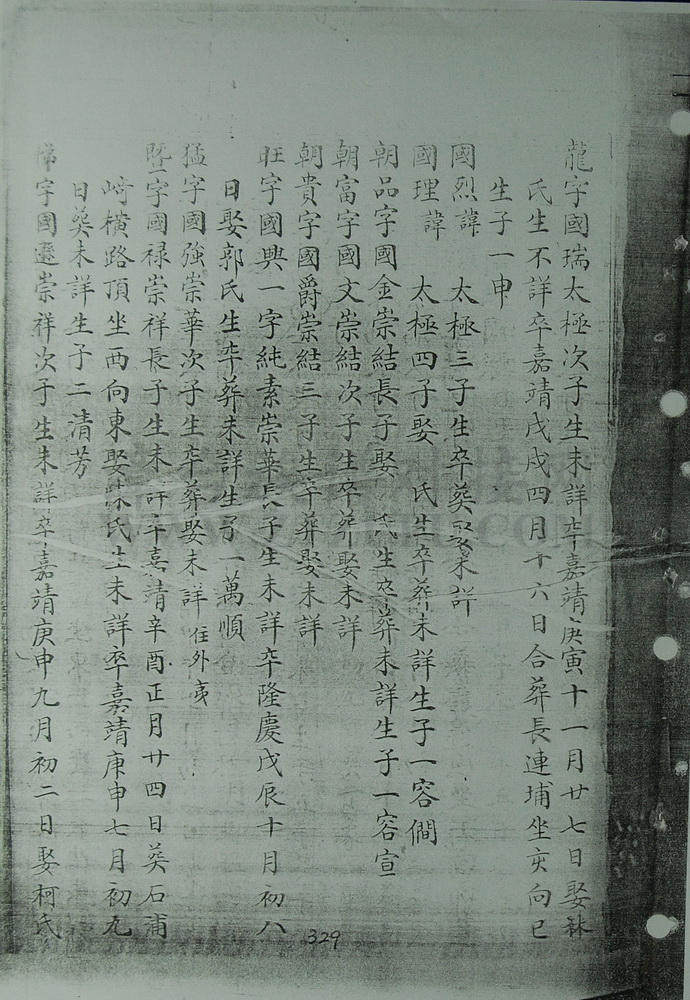 龍字國瑞太極次子生未詳卒嘉靖庚寅十一月廿七日娶林
氏生不詳卒嘉靖戊戌四月十六日合葬長連埔坐亥向巳
生子一申
國烈諱 太極三子生卒葬娶未詳
國理諱 太極四子娶 氏生卒葬未詳生子一容僩
朝品字國金崇結長子娶 氏生卒葬未詳生子一容宣
朝富字國文崇結次子生卒葬娶未詳
朝貴字國爵崇結三子生卒葬娶未詳
旺字國興一字純素崇華長子生未詳卒隆慶戊辰十月初八
日娶郭氏生卒葬未詳生子一萬順
猛字國強崇華次子生卒葬娶未詳住外夷
暨字國祿崇祥長子生未詳卒嘉靖辛酉正月廿四日葬石浦
崎橫路頂坐西向東娶 氏生未詳卒嘉靖庚申七月初九
日葬未詳生子二清芳
悌字國 崇祥次子生未詳卒嘉靖庚申九月初二日娶柯氏
329